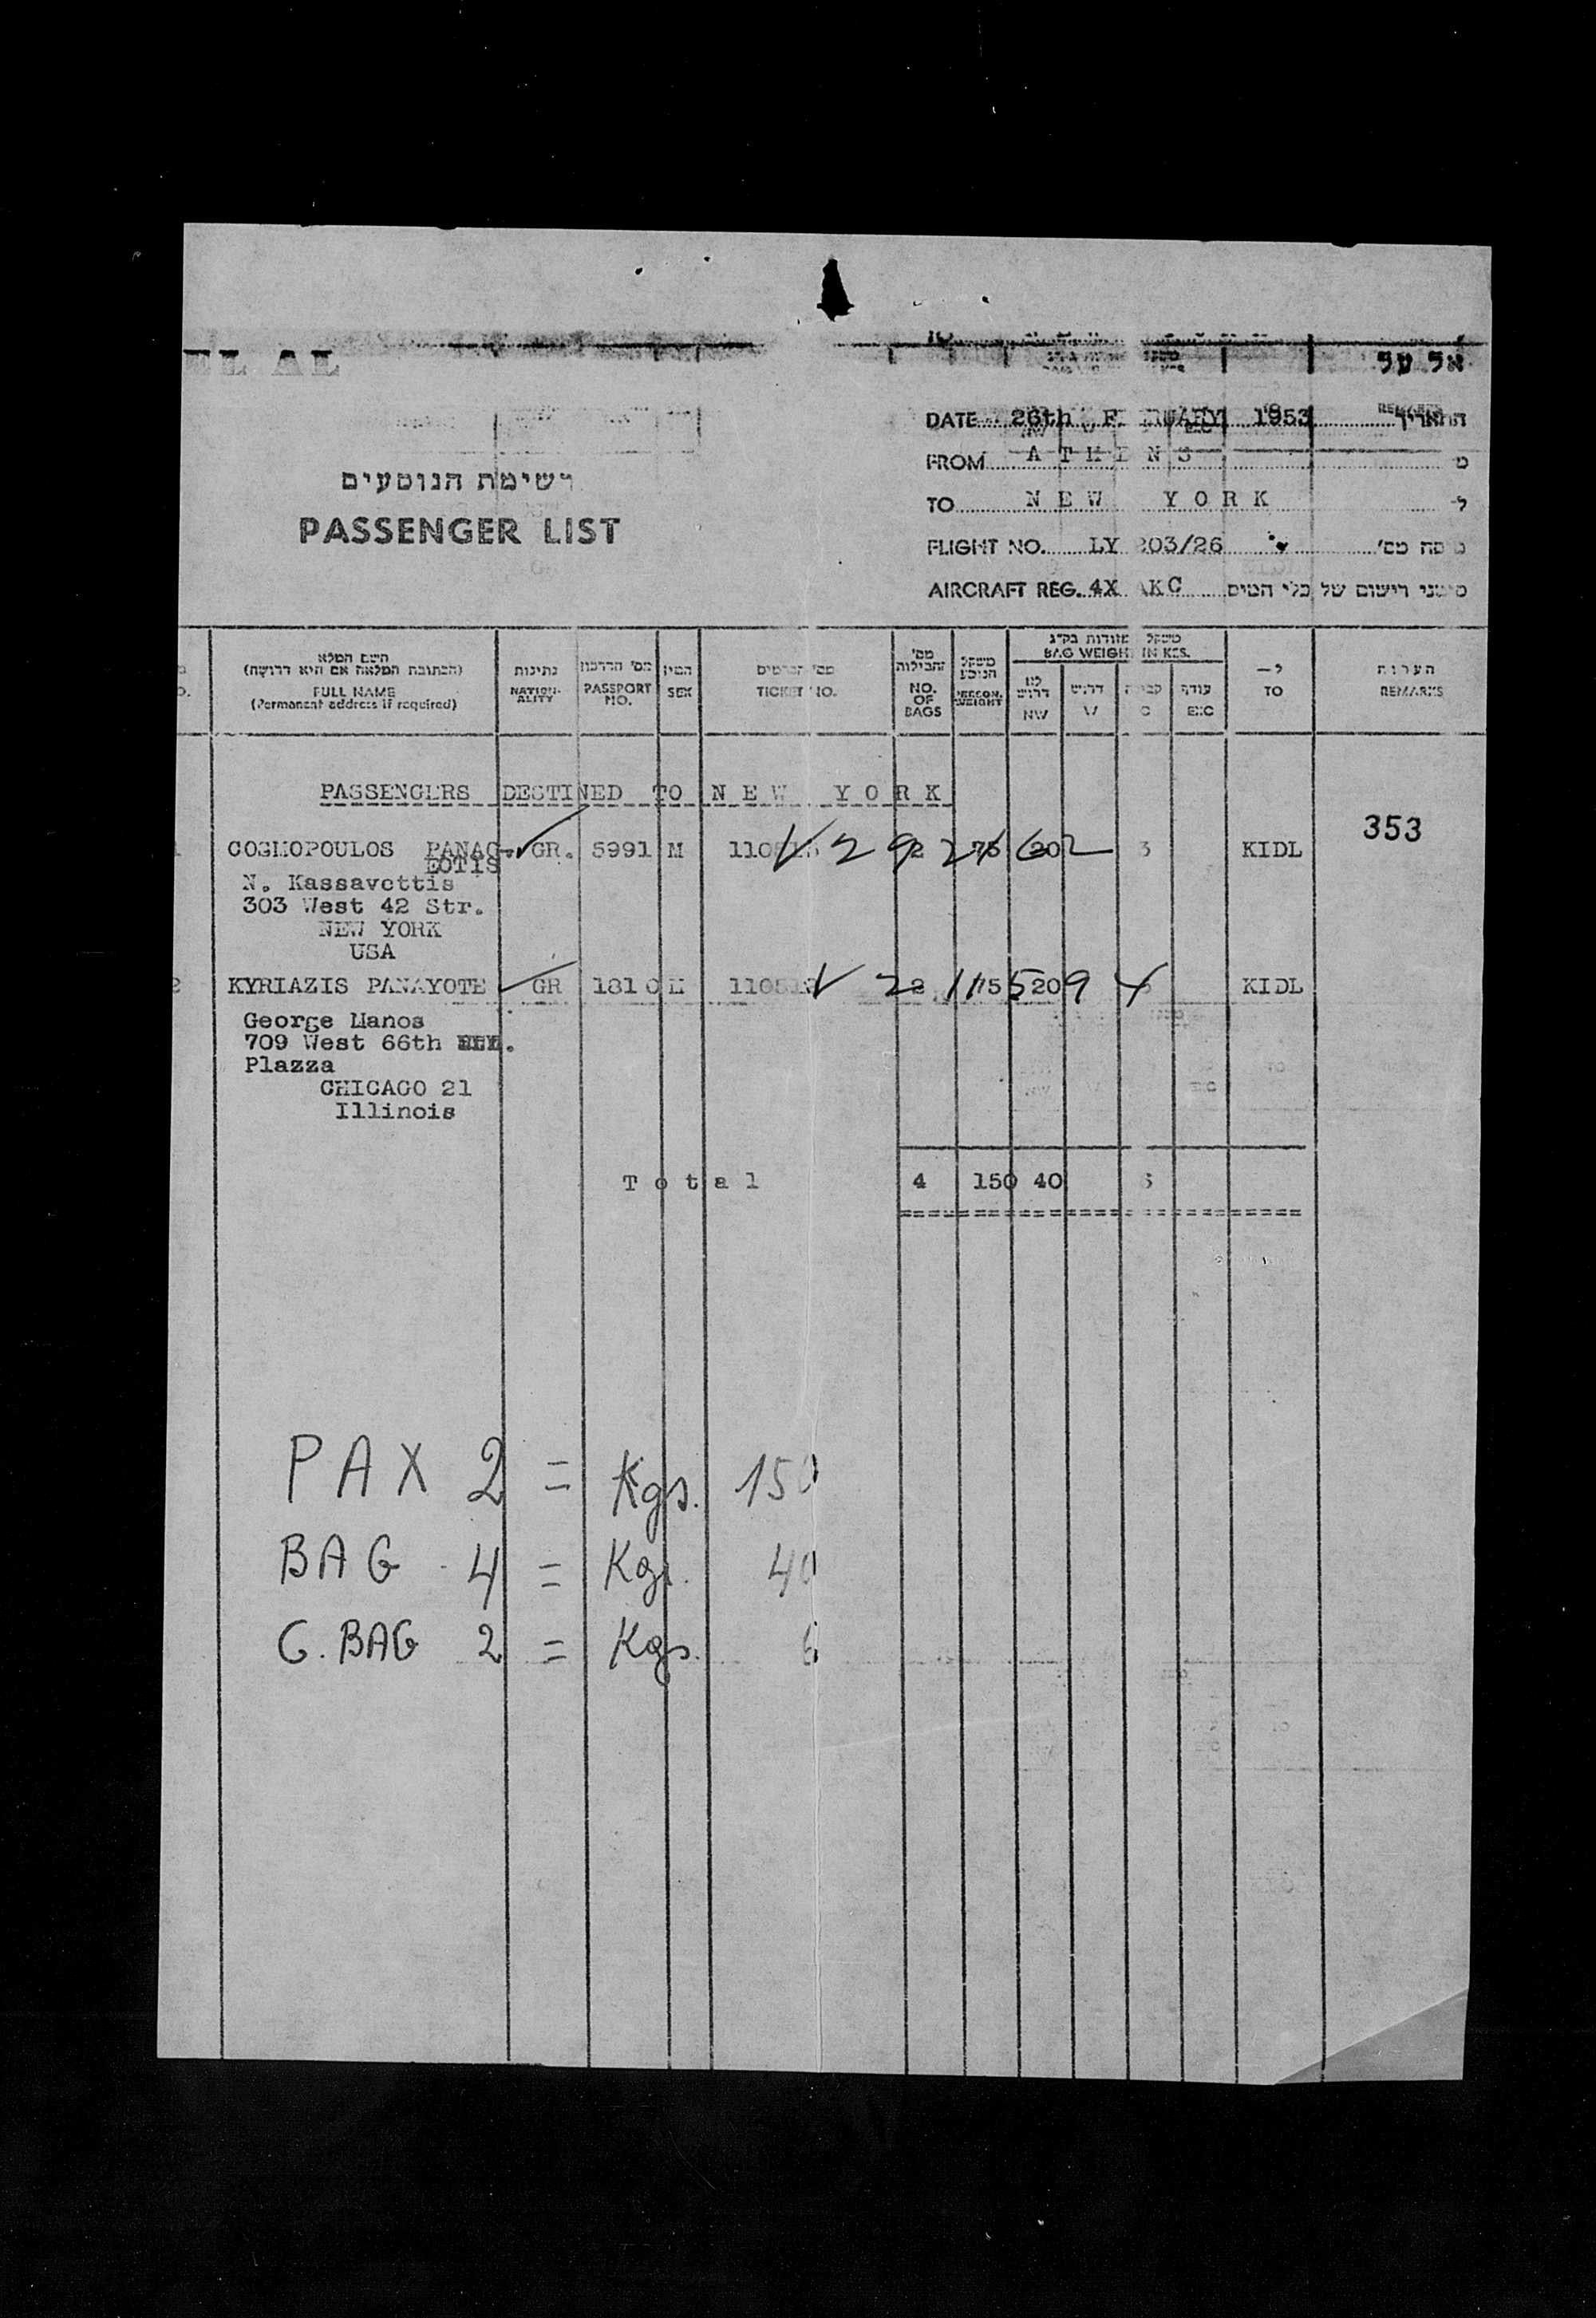 EL AL אל על
DATE 26th FEBRUARY 1953 התאריך
FROM A T H E N S מ
רשימת הנוסעים
TO N E W Y O R K ל-
PASSENGER LIST
FLIGHT NO. LY 203/26 טיסה מס'
AIRCRAFT REG. 4X AKC סימני רישום של כלי הטיס
השם המלא
(הכתובת המלאה אם היא דרושה)
FULL NAME
(Permanent address if required)
נתינות
NATION-
ALITY
מס' הדרכון
PASSPORT
NO.
המין
SEX
מס' הכרטיס
TICKET NO.
מס'
החבילות
NO.
OF
BAGS
משקל
הנוסע
PERSON.
WEIGHT
משקל מזודות בק"ג
BAG WEIGHT IN KGS.
לא
דרוש
NW
דרוש
W
קבינה
C
עודף
EXC
ל—
TO
הערות
REMARKS
PASSENGERS DESTINED TO N E W Y O R K
353
COSMOPOULOS PANAG- GR. 5991 M 2 75 20 3 KIDL
EOTIS
N. Kassavettis
303 West 42 Str.
NEW YORK
USA
2 KYRIAZIS PANAYOTE GR 1810 M 2 75 20 KIDL
George Manos
709 West 66th
Plazza
CHICAGO 21
Illinois
T o t a l 4 150 40 6
PAX 2 = Kgs. 150
BAG 4 = Kgs. 40
C. BAG 2 = Kgs. 6